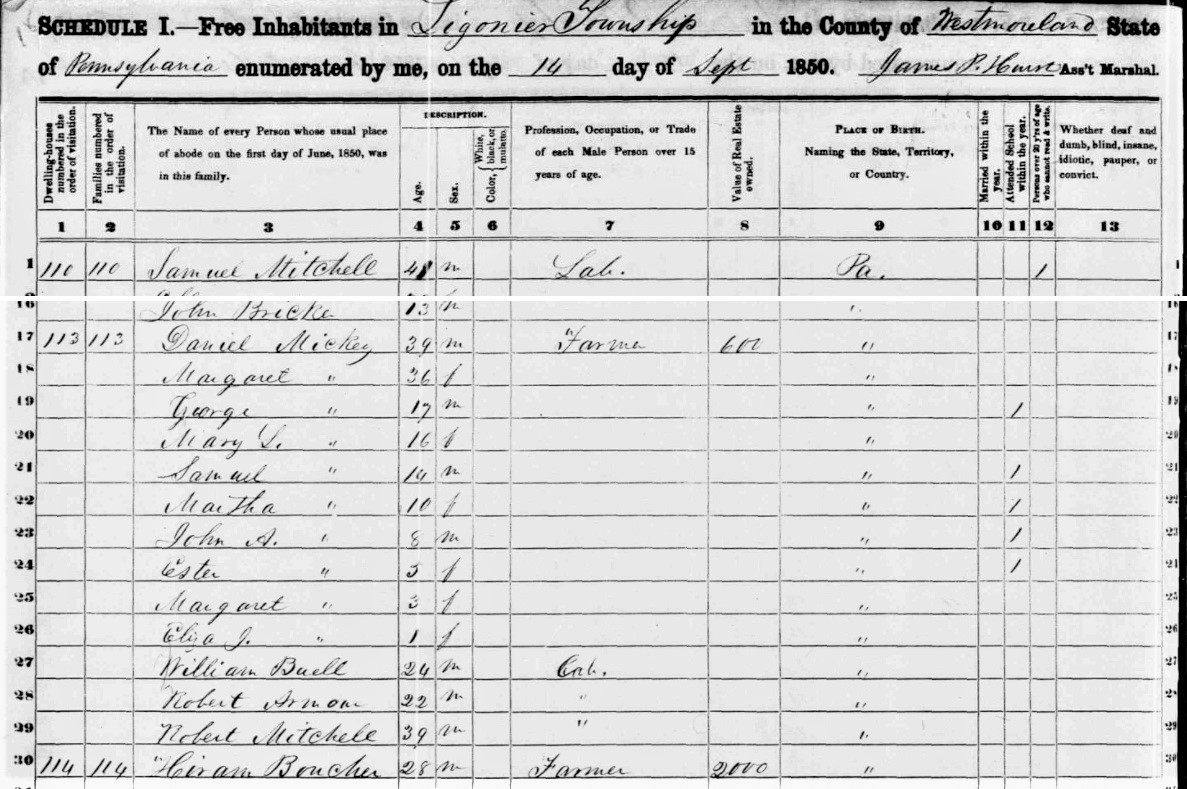 SCHEDULE I.—Free Inhabitants in Ligonier Township in the County of Westmoreland State
of Pennsylvania enumerated by me, on the 14 day of Sept 1850. James P. Hurst Ass't Marshal.
Dwelling-houses numbered in the order of visitation.
Families numbered in the order of visitation.
The Name of every Person whose usual place of abode on the first day of June, 1850, was in this family.
DESCRIPTION.
Age.
Sex.
Color, { White, black, or mulatto.
Profession, Occupation, or Trade of each Male Person over 15 years of age.
Value of Real Estate owned.
PLACE OF BIRTH. Naming the State, Territory, or Country.
Married within the year.
Attended School within the year.
Persons over 20 y'rs of age who cannot read & write.
Whether deaf and dumb, blind, insane, idiotic, pauper, or convict.
1 2 3 4 5 6 7 8 9 10 11 12 13
1 110 110 Samuel Mitchell 41 m Lab. Pa. / 1
16 John Bricke 13 m " 16
17 113 113 Daniel Mickey 39 m Farmer 600 " 17
18 Margaret " 36 f " 18
19 George " 17 m " / 19
20 Mary L. " 16 f " 20
21 Samuel " 14 m " / 21
22 Martha " 10 f " / 22
23 John A. " 8 m " / 23
24 Ester " 5 f " / 24
25 Margaret " 3 f " 25
26 Eliza J. " 1 f " 26
27 William Buell 24 m Lab. " 27
28 Robert Armour 22 m " " 28
29 Robert Mitchell 39 m " " 29
30 114 114 Hiram Boucher 28 m Farmer 2000 " 30